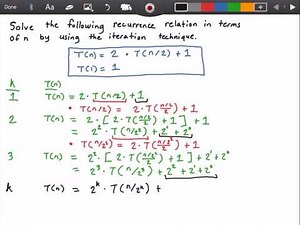 Done
Solve the following recurrence relation in terms
of n by using the iteration technique.
T(n) = 2 · T(n/2) + 1
T(1) = 1
k T(n)
1 T(n) = 2 · T(n/2) + 1
• T(n/2) = 2 · T(n/2/2) + 1
2 T(n) = 2 · [2 · T(n/2/2) + 1] + 1
= 2² · T(n/2²) + 2¹ + 2⁰
• T(n/2²) = 2 · T(n/2²/2) + 1
3 T(n) = 2² · [2 · T(n/2²/2) + 1] + 2¹ + 2⁰
= 2³ · T(n/2³) + 2² + 2¹ + 2⁰
k T(n) = 2ᵏ · T(n/2ᵏ) +